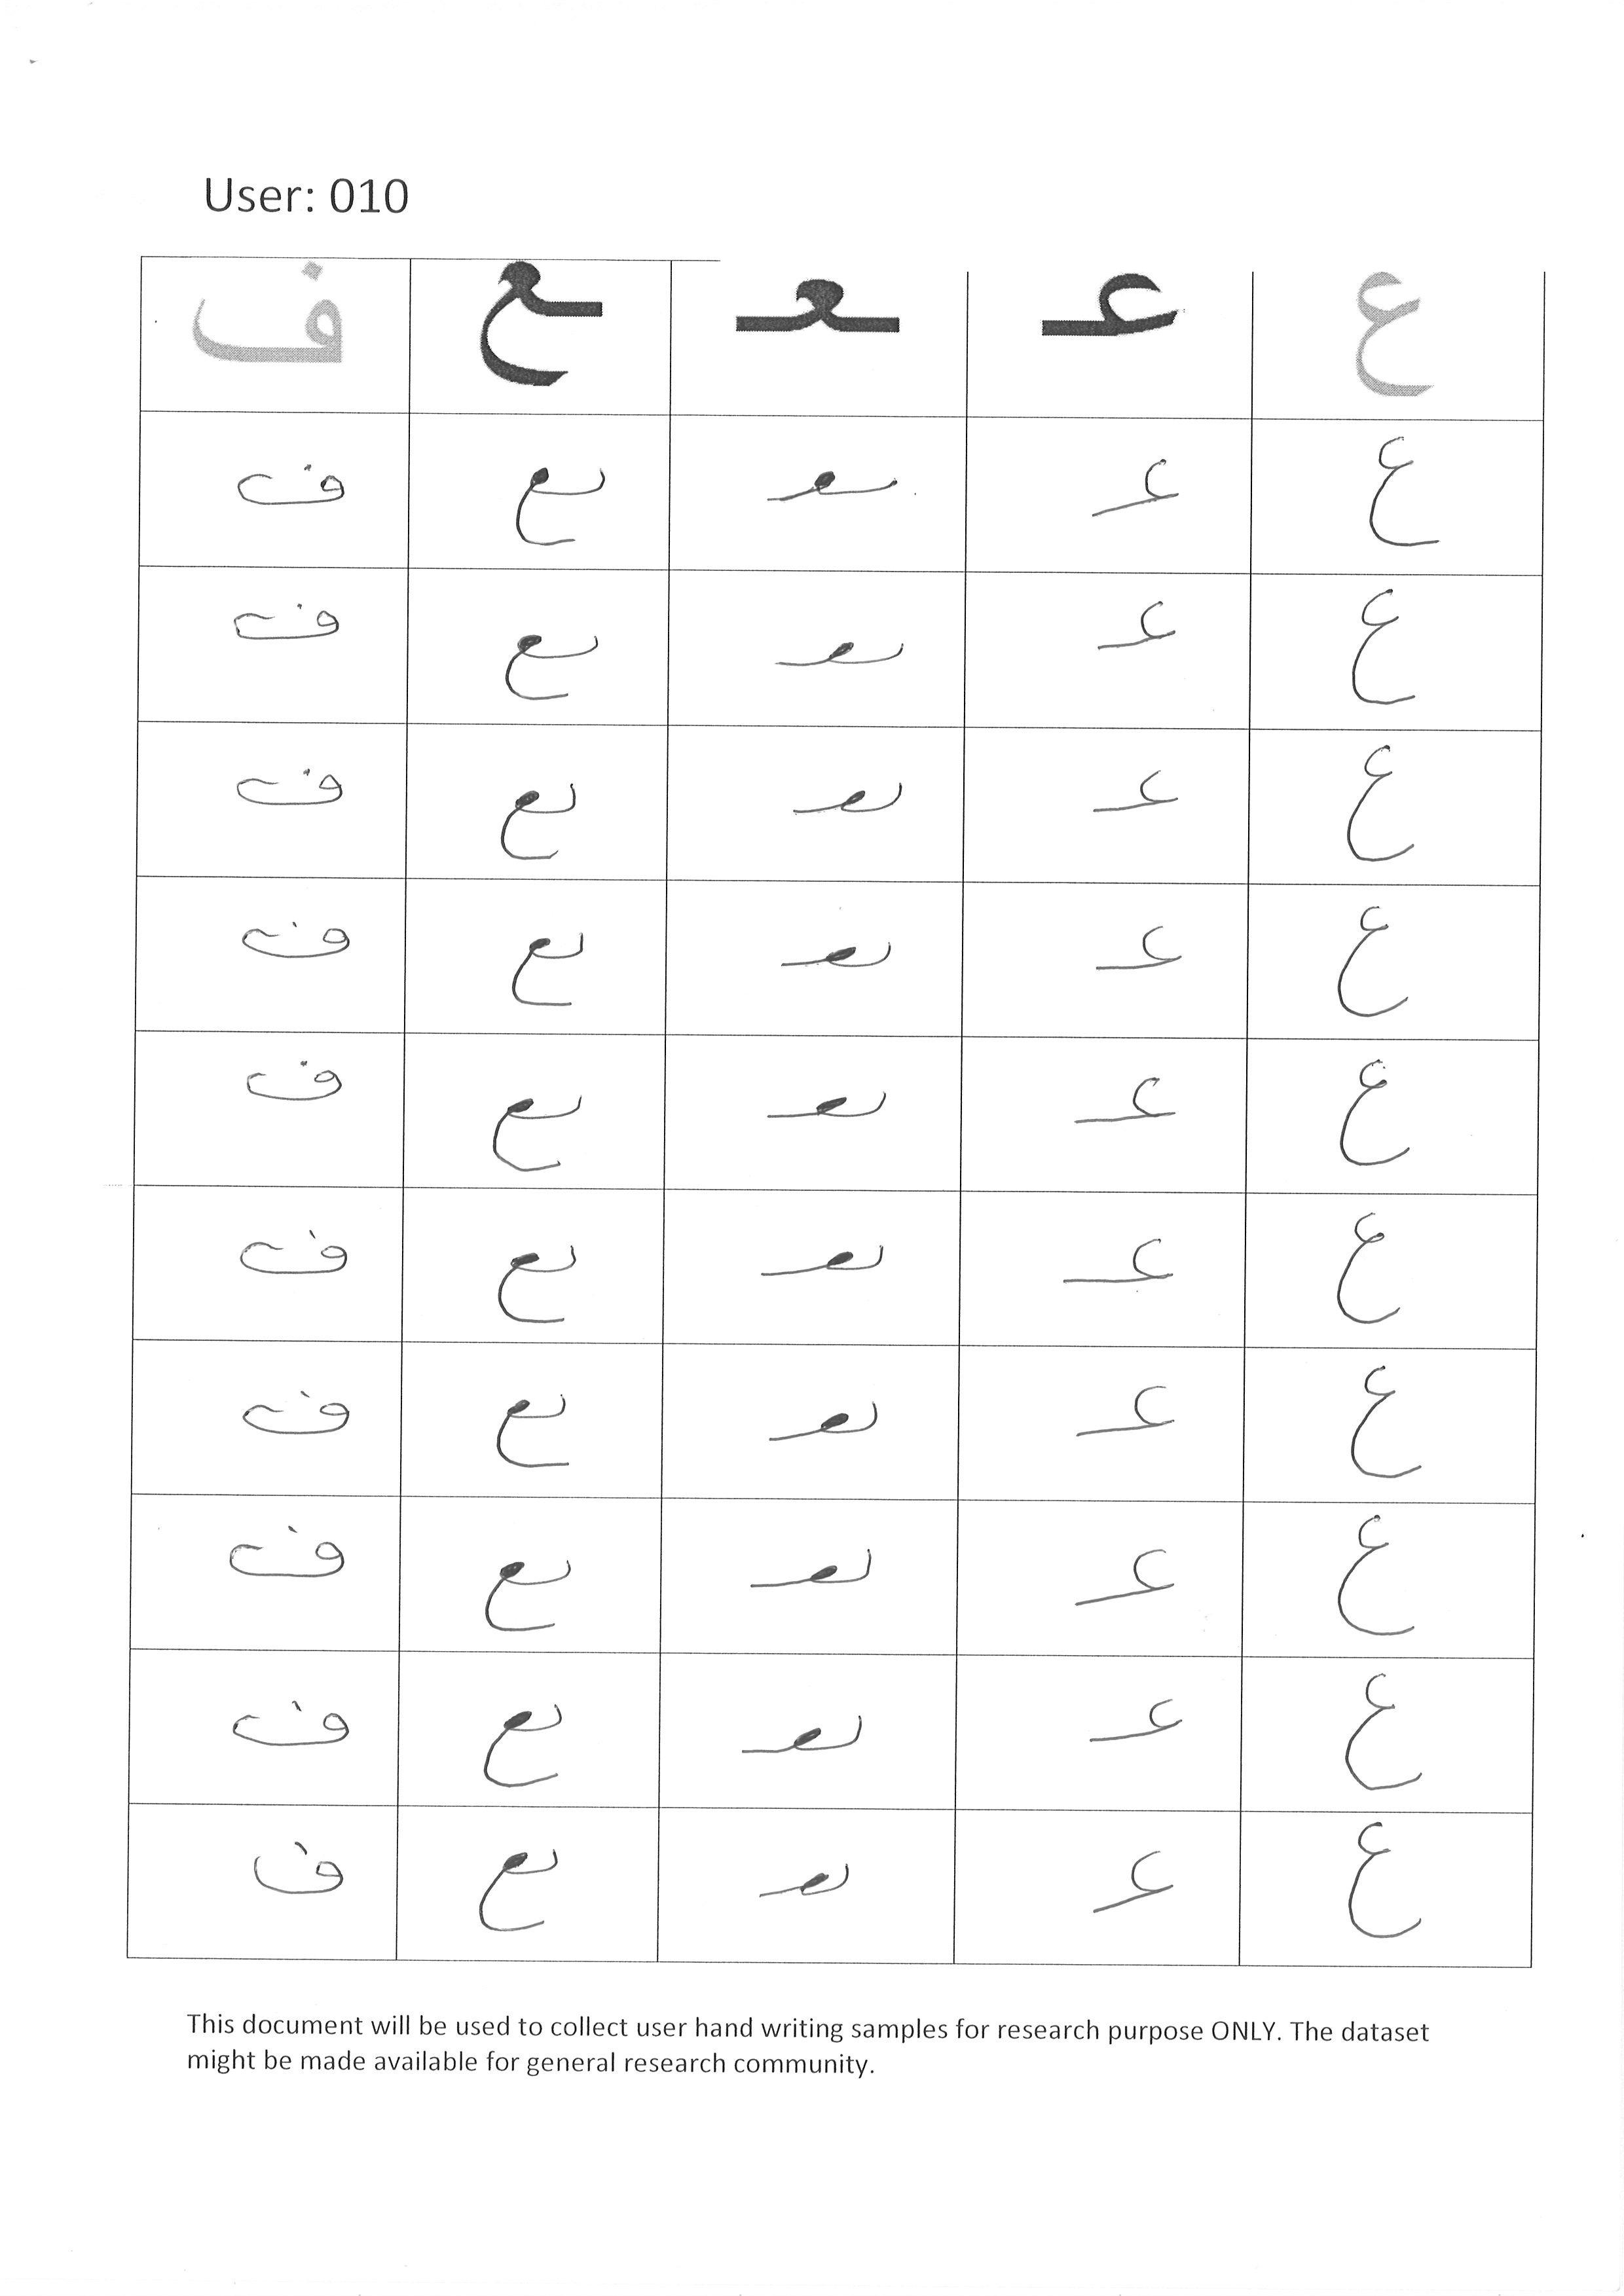 User: 010
ع عـ ـعـ ـع ف
ع عـ ـعـ ـع ف
ع عـ ـعـ ـع ف
ع عـ ـعـ ـع ف
ع عـ ـعـ ـع ف
ع عـ ـعـ ـع ف
ع عـ ـعـ ـع ف
ع عـ ـعـ ـع ف
ع عـ ـعـ ـع ف
ع عـ ـعـ ـع ف
ع عـ ـعـ ـع ف
This document will be used to collect user hand writing samples for research purpose ONLY. The dataset
might be made available for general research community.